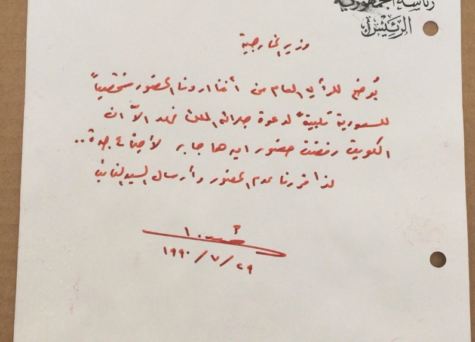 رئاسة الجمهورية
الرئيس
وزير الخارجية
يوضح للرأي العام من أننا اردنا الحضور شخصياً
للسعودية تلبيةً لدعوة جلالة الملك فهد الا ان
الكويت رفضت حضور اميرها جابر لاجتماع جدة..
لذا قررنا عدم الحضور وأرسال السيد النائب
١٩٩٠/٧/٢٩